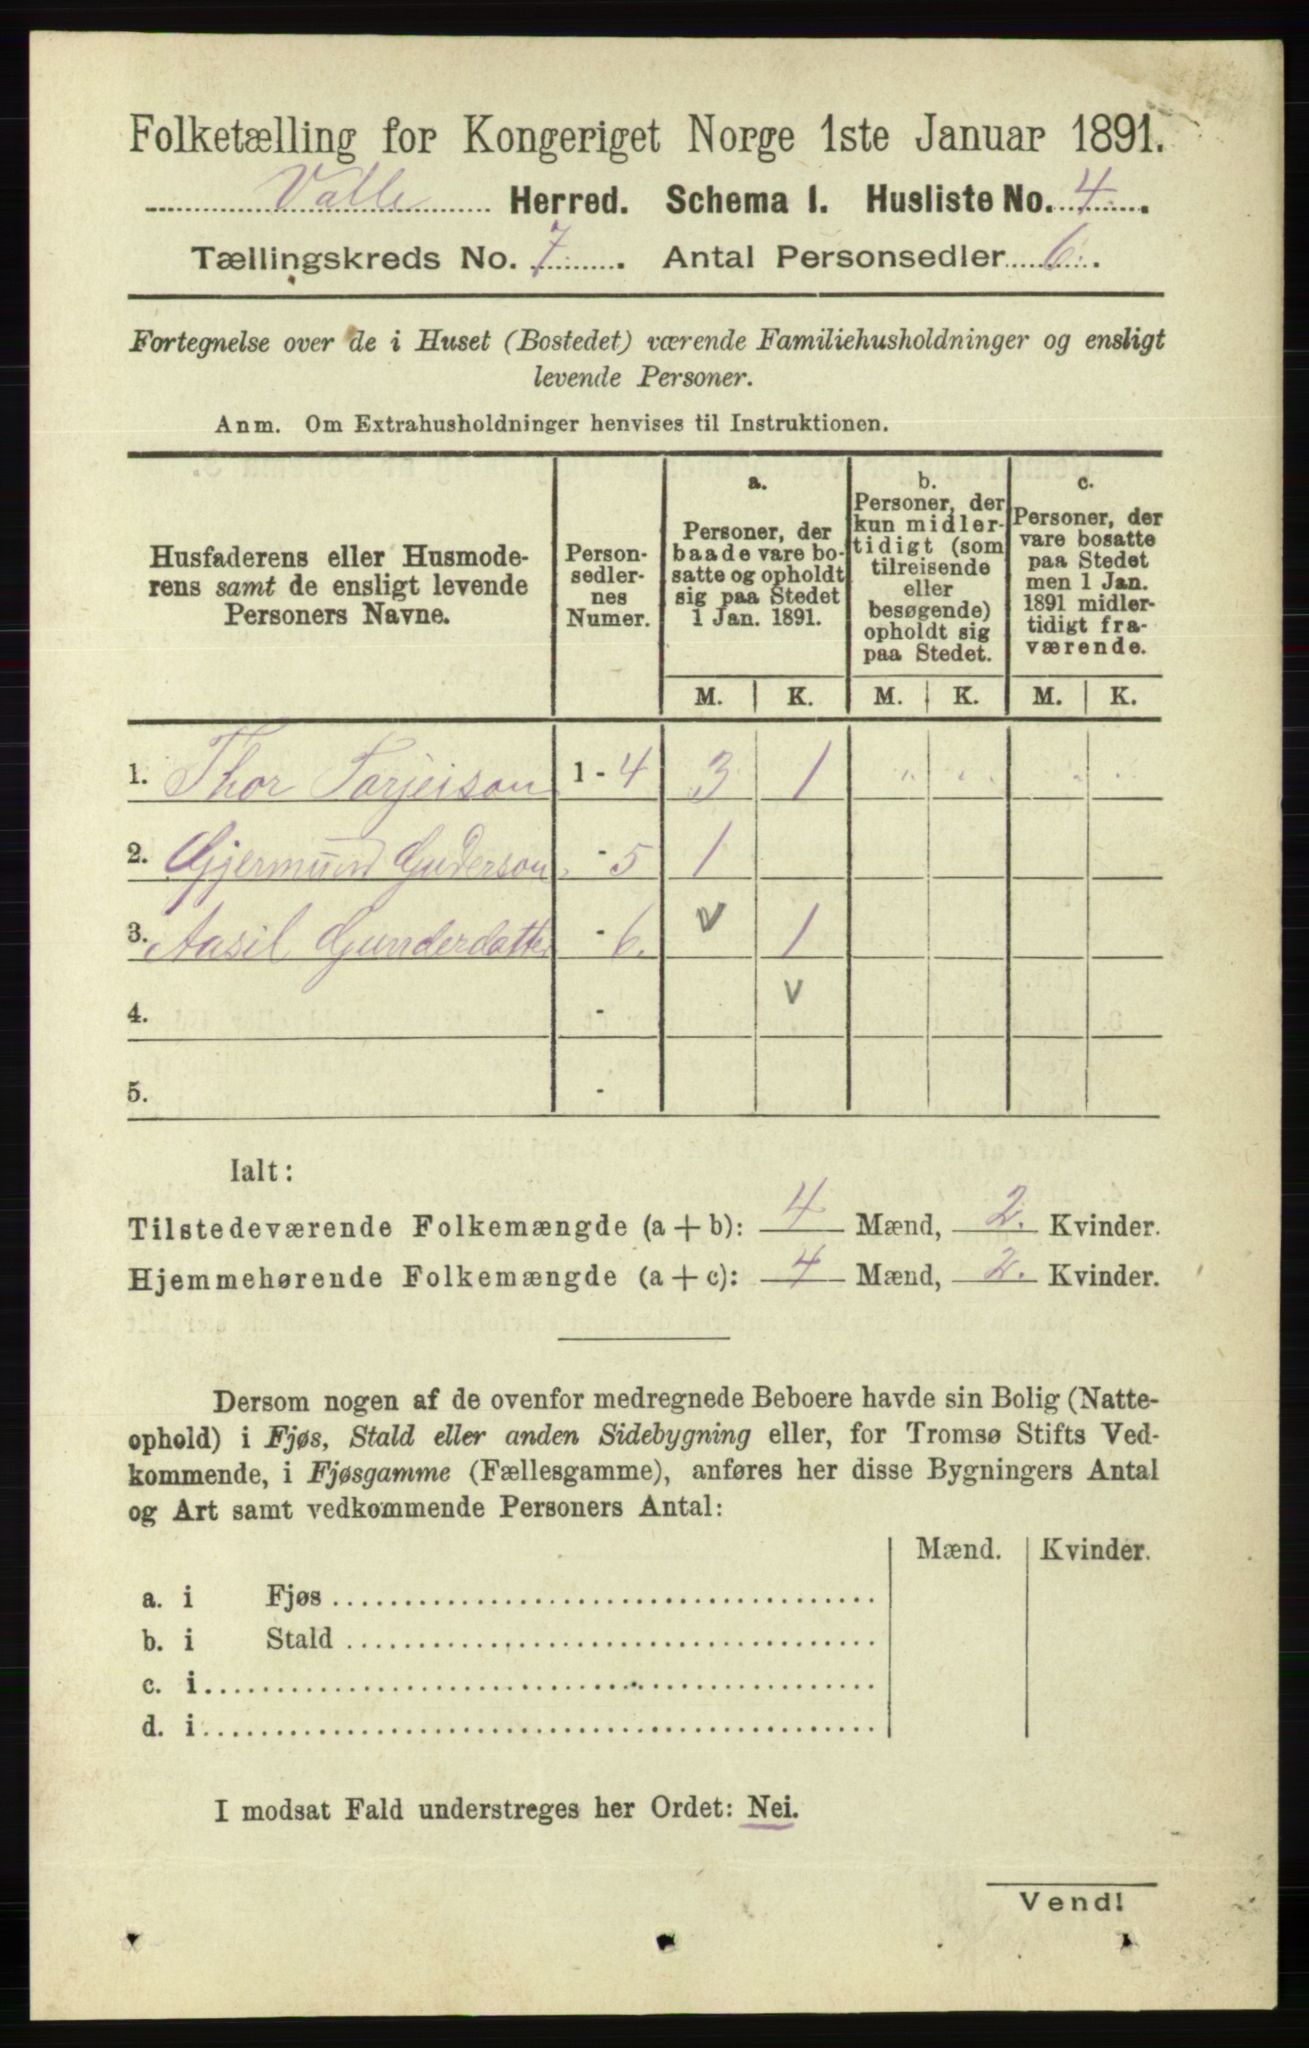 Folketælling for Kongeriget Norge 1ste Januar 1891.
Valle Herred. Schema I. Husliste No. 4.
Tællingskreds No. 7. Antal Personsedler 6.
Fortegnelse over de i Huset (Bostedet) værende Familiehusholdninger og ensligt
levende Personer.
Anm. Om Extrahusholdninger henvises til Instruktionen.
Husfaderens eller Husmode-
rens samt de ensligt levende
Personers Navne.
Person-
sedler-
nes
Numer.
a.
Personer, der
baade vare bo-
satte og opholdt
sig paa Stedet
1 Jan. 1891.
b.
Personer, der
kun midler-
tidigt (som
tilreisende
eller
besøgende)
opholdt sig
paa Stedet.
c.
Personer, der
vare bosatte
paa Stedet
men 1 Jan.
1891 midler-
tidigt fra-
værende.
M. K. M. K. M. K.
1. Thor Torjeison 1 - 4 3 1
2. Gjermund Guderson - 5 1
3. Aasil Gunderdatter - 6. v 1
4. - v
5. -
Ialt:
Tilstedeværende Folkemængde (a + b): 4 Mænd, 2. Kvinder.
Hjemmehørende Folkemængde (a + c): 4 Mænd, 2. Kvinder.
Dersom nogen af de ovenfor medregnede Beboere havde sin Bolig (Natte-
ophold) i Fjøs, Stald eller anden Sidebygning eller, for Tromsø Stifts Ved-
kommende, i Fjøsgamme (Fællesgamme), anføres her disse Bygningers Antal
og Art samt vedkommende Personers Antal:
Mænd. Kvinder.
a. i Fjøs
b. i Stald
c. i
d. i
I modsat Fald understreges her Ordet: Nei.
Vend!